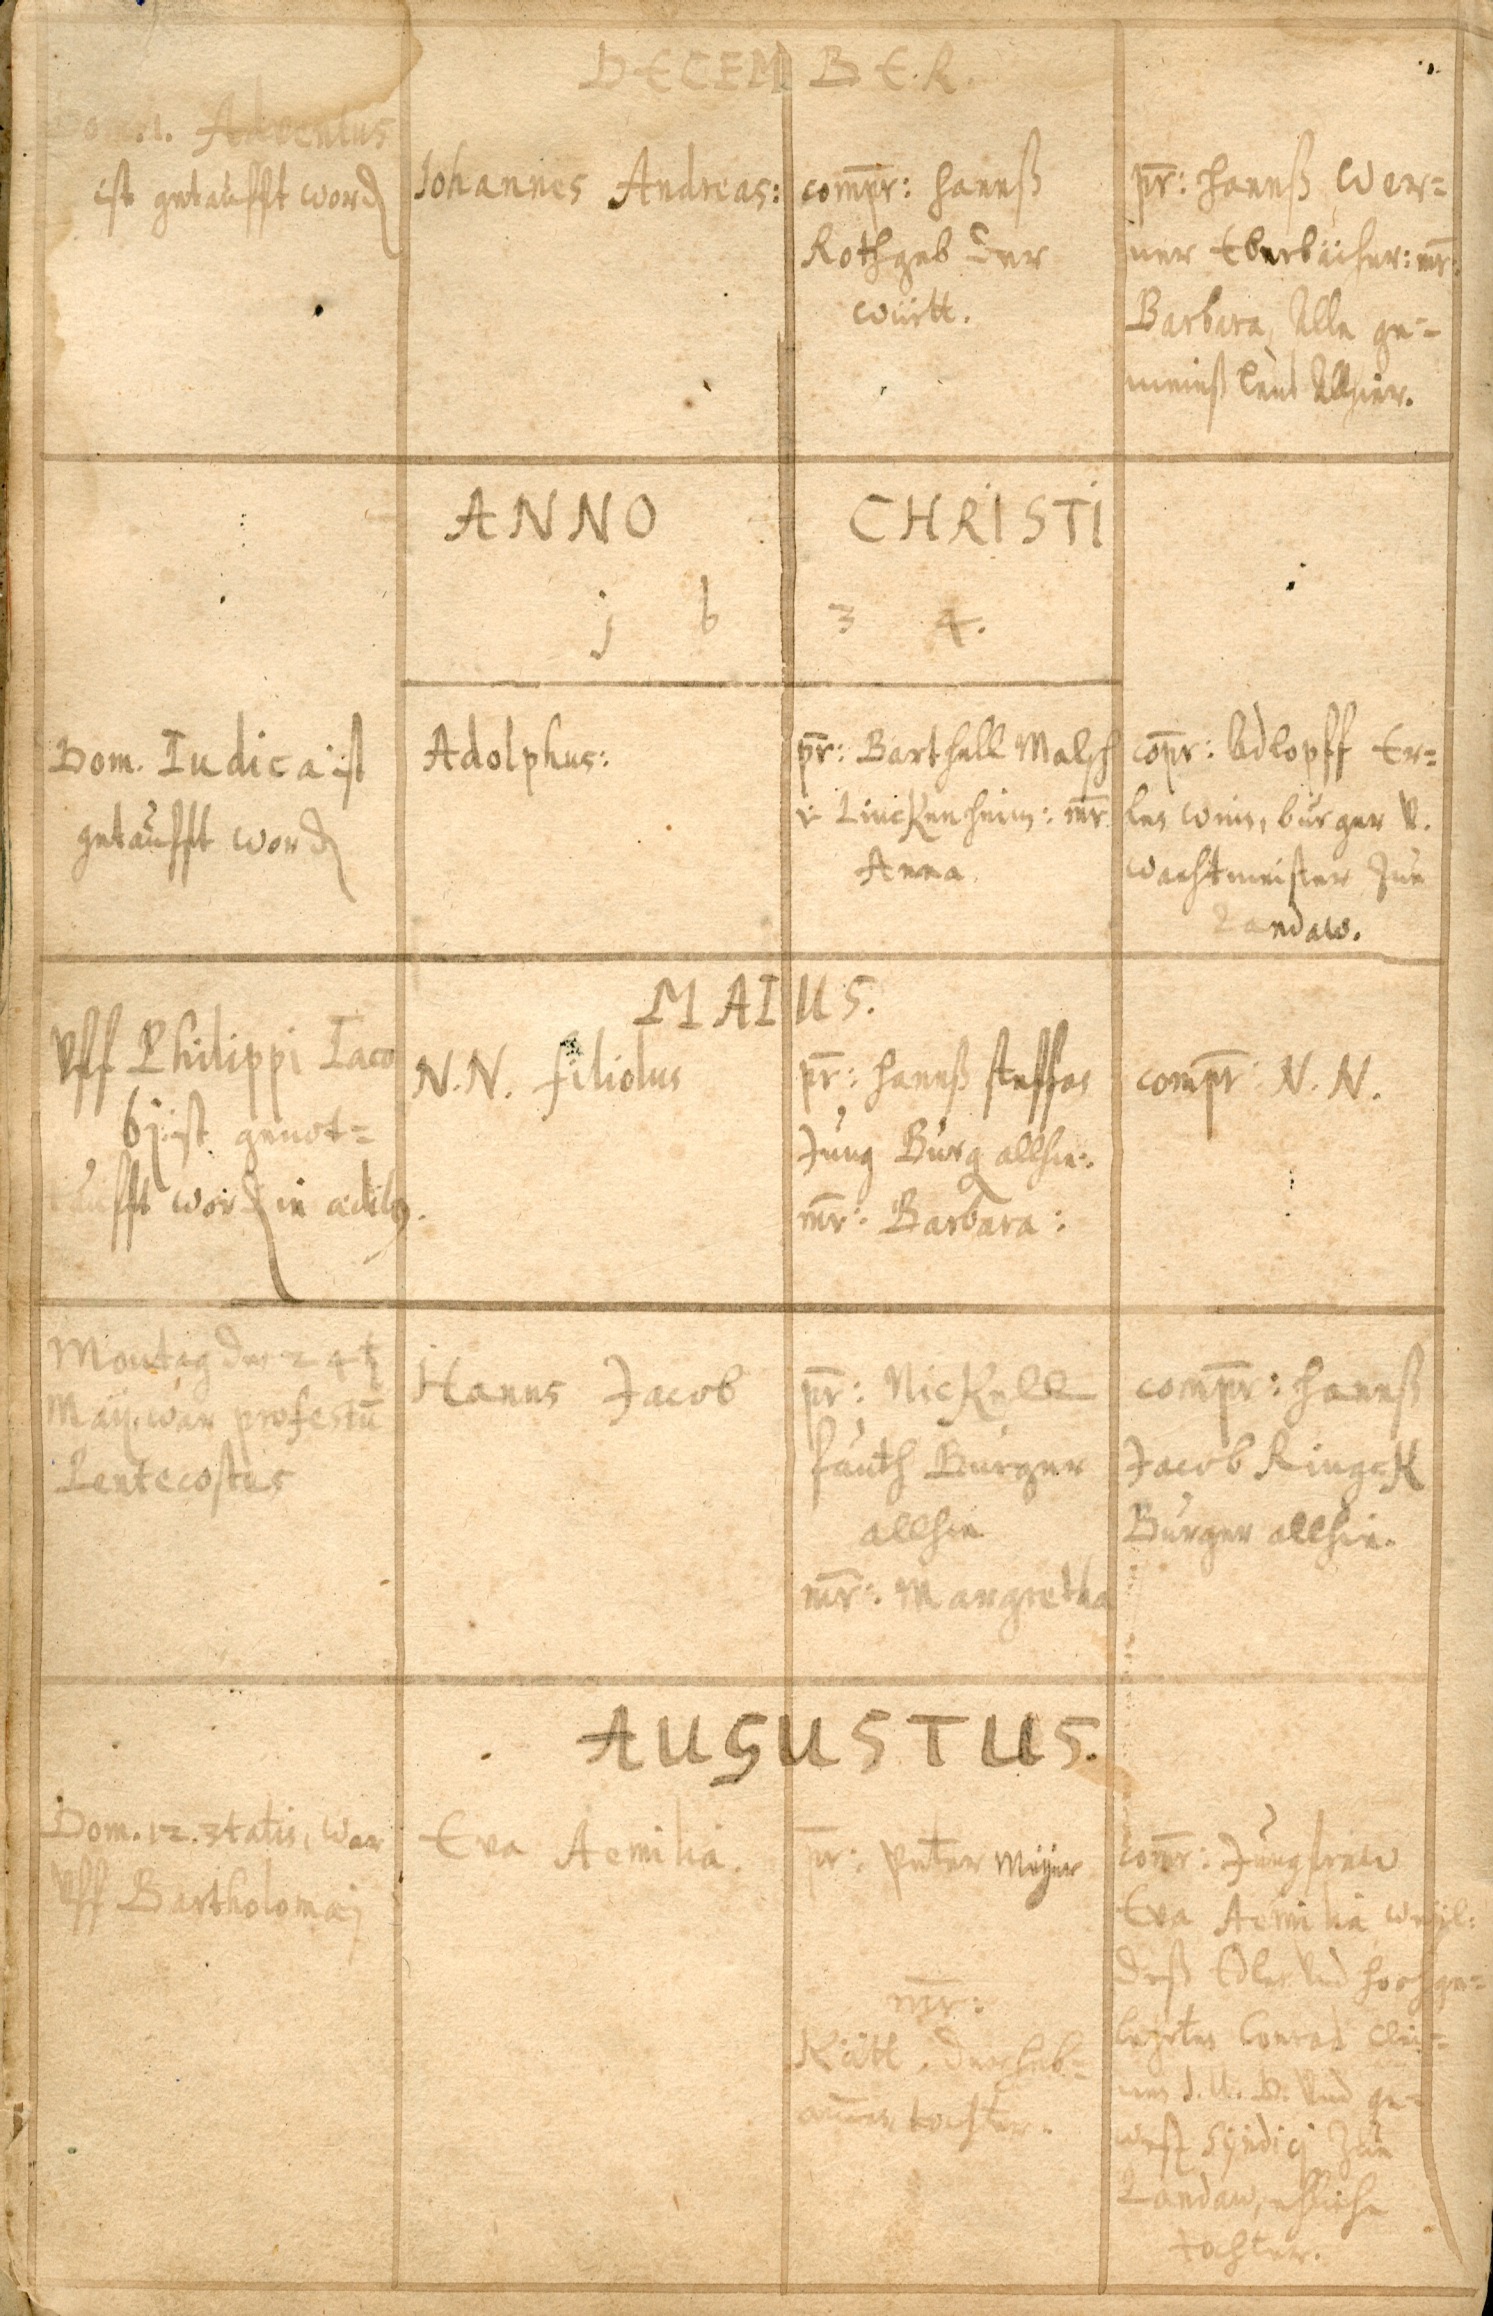 DECEMBER.
Dom. 1. Adventus
ist getaufft word
Johannes Andreas:
compr: Hannß
Rothgeb der
württ.
pr: Hannß Wer=
ner Eberbächer: mr:
Barbara, Alle ge=
meinß leut Allhier.
ANNO CHRISTI
j 6 3 4.
Dom. Iudica ist
getaufft word
Adolphus:
pr: Barthell Malsch
v Linckenheim: mr
Anna.
compr: Adlopff Er=
les weis, burger v.
wachtmeister zue
Landaw.
MAIUS.
Vff Philippi Iaco
bj ist genot=
taufft word in ædib9.
N.N. filiolus
pr: Hannß steffas
Jung Burg allhie:
mr: Barbara:
compr: N. N.
Montag den 24t
Maij. war profestū
Pentecostes
Hanns Jacob
pr: Nickell
fauth Burger
allhie
mr: Margretha
compr: Hannß
Jacob Ringck
Burger allhie.
AUGUSTUS.
Dom. 12. 3tatis, war
Vff Bartholomæj
Eva Aemilia.
pr: Peter Meÿer
mr:
Kütt. der heb=
amen tochter.
compr: Jungfraw
Eva Aemilia weÿl:
deß Edlen und hochge=
lehrten Conrad
J. U. D. und ge=
west Sÿndicj zue
Landaw, ehliche
tochter.